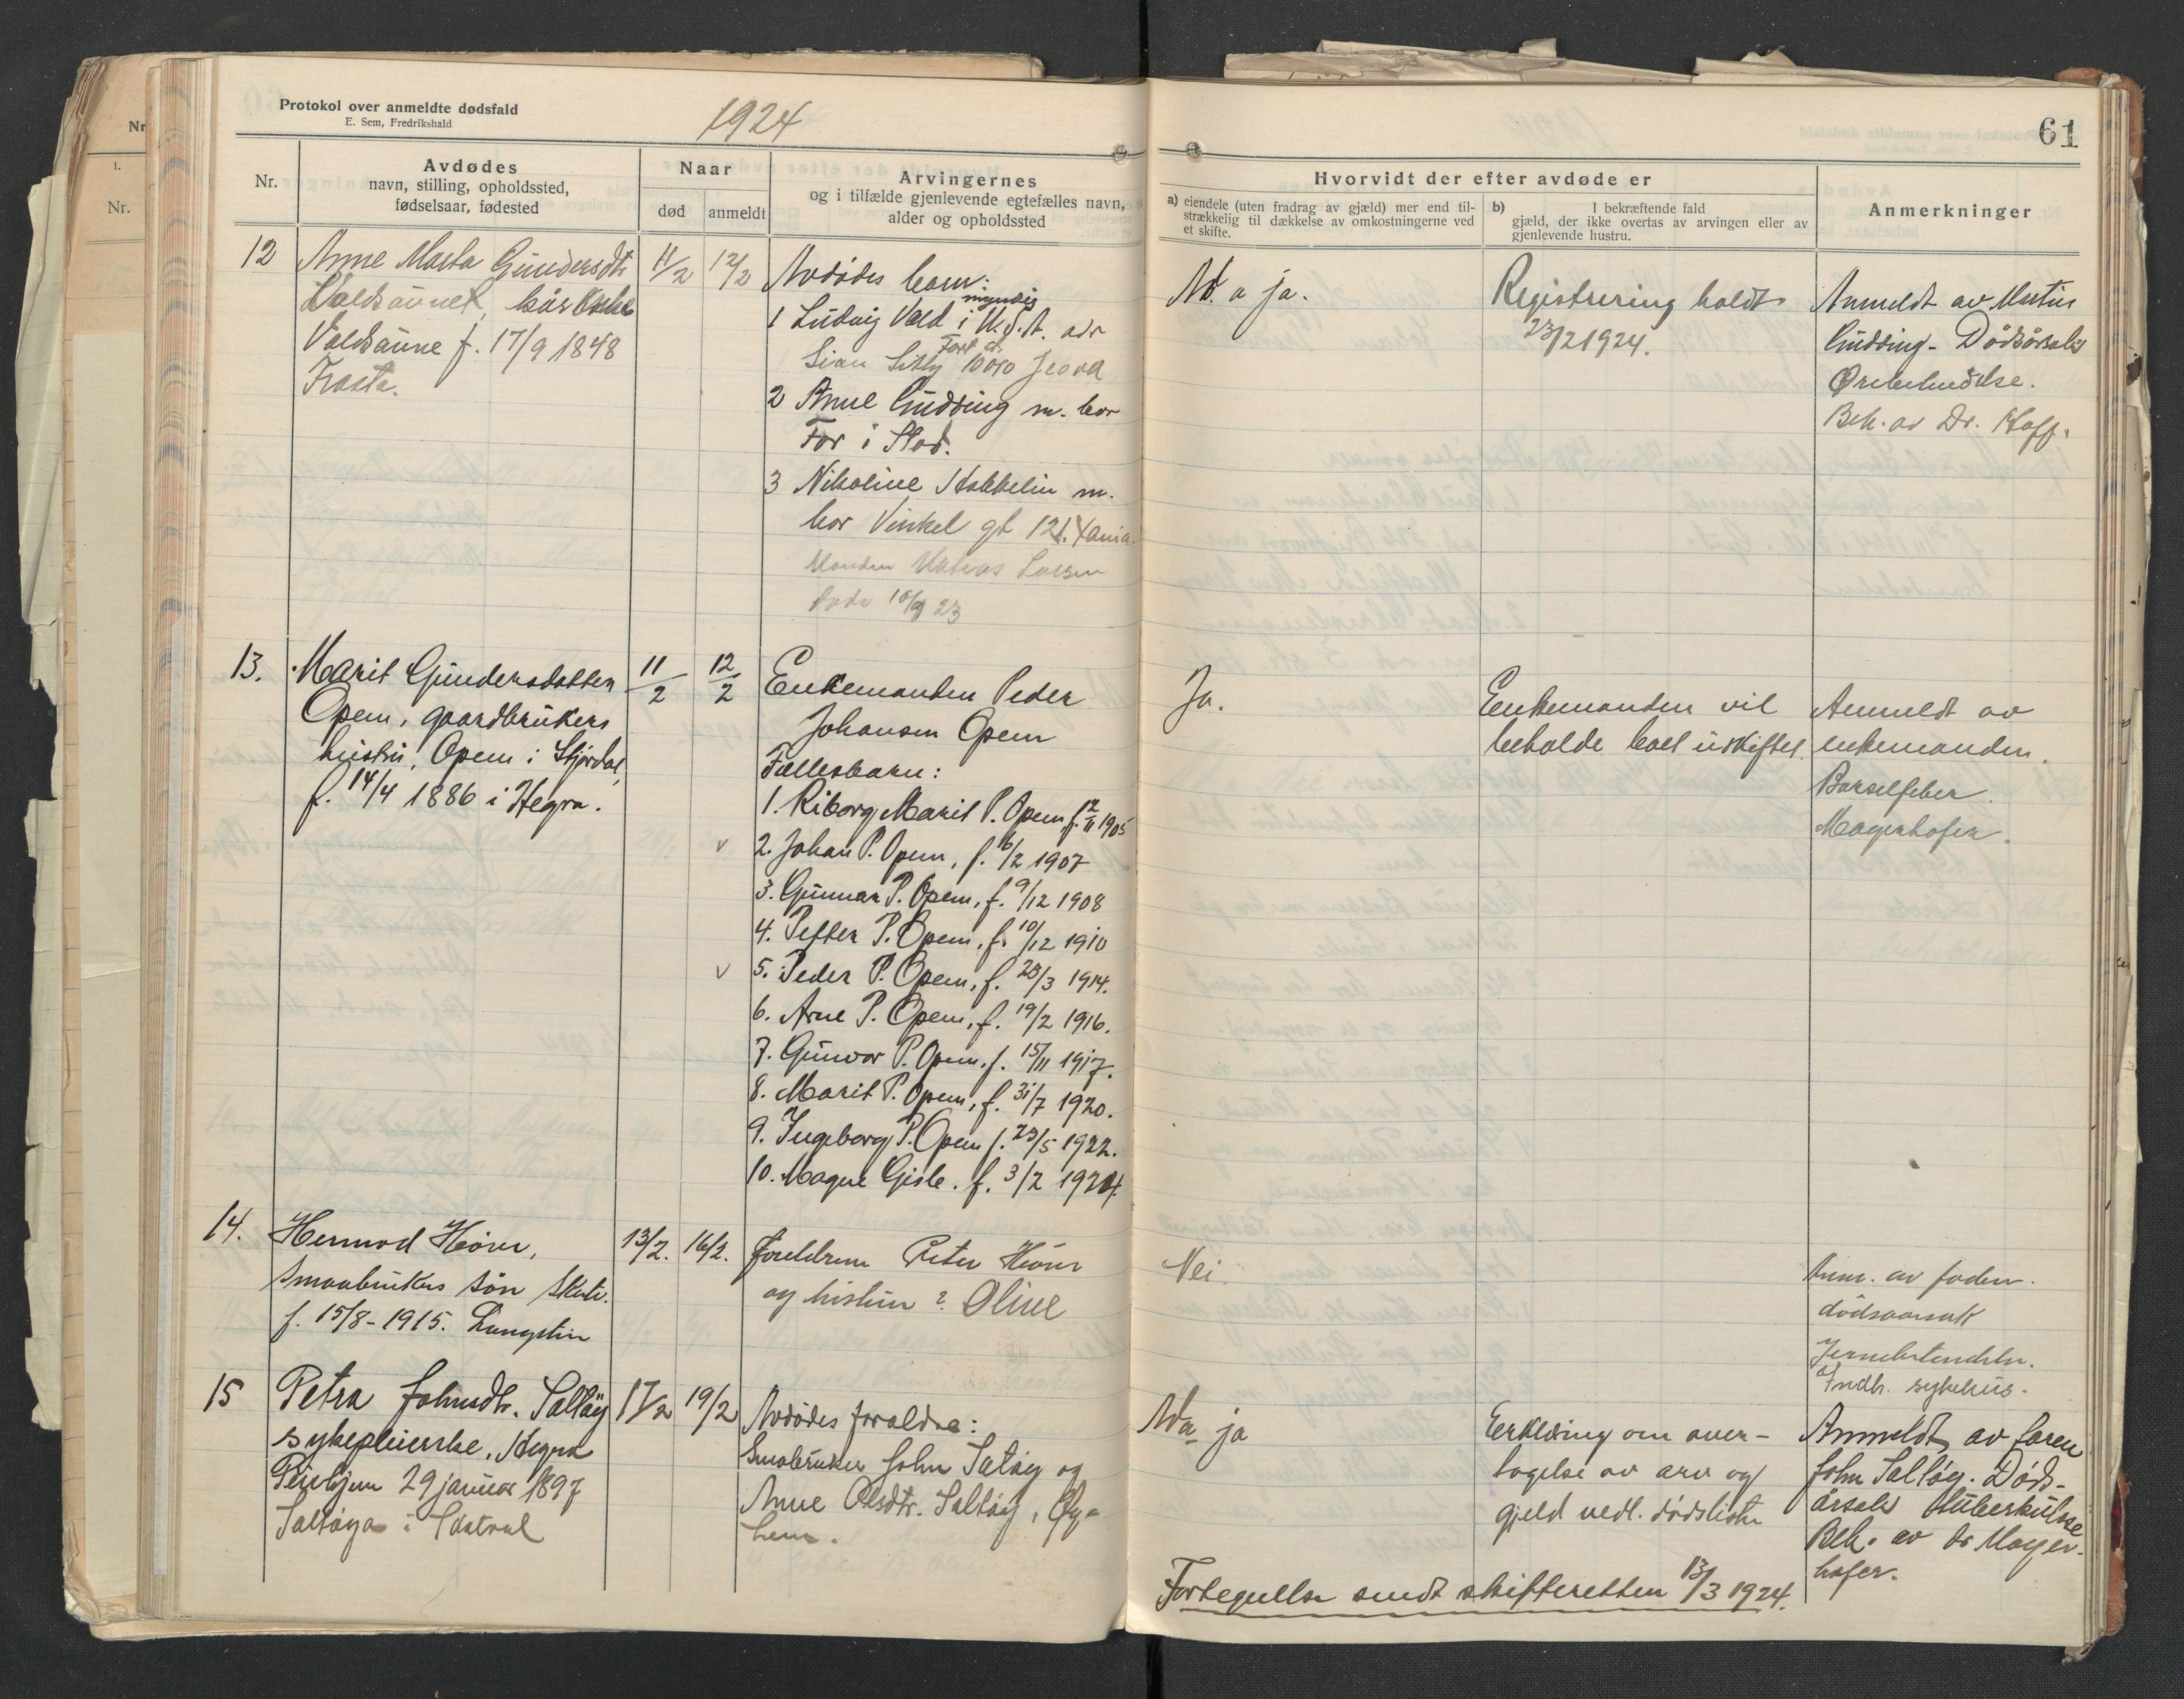 Protokol over anmeldte dødsfald
E. Sem, Fredrikshald
1924
61
Nr.
Avdødes
navn, stilling, opholdssted,
fødselsaar, fødested
Naar
død
anmeldt
Arvingernes
og i tilfælde gjenlevende egtefælles navn,
alder og opholdssted
Hvorvidt der efter avdøde er
a) eiendele (uten fradrag av gjæld) mer end til-
strækkelig til dækkelse av omkostningerne ved
et skifte.
b) I bekræftende fald
gjæld, der ikke overtas av arvingen eller av
gjenlevende hustru.
Anmerkninger
12
Anne Marta Gundersdtr
Valdsaunet, kårenke
Valdsaune f. 17/9 1848
Frosta.
11/2
12/2
Avdødes barn:
myndig
1 Ludvig Vald i U.S.A. adr
Fort
Sioux City
2 Anne Gudding m. bor
For i Stod.
3 Nikoline Stokkelin m.
bor Vinkel gt 12
Manden Larsen
døde 10/9 23
Ad. a ja.
Registrering holdt
23/2 1924.
Anmeldt av
Gudding - Dødsårsak
Ørebetendelse.
Beh. av Dr. Hoff.
13.
Marit Gundersdatter
Opem, gaardbrukers
hustru, Opem i Stjørdal,
f. 14/4 1886 i Hegra.
11/2
12/2
Enkemanden Peder
Johansen Opem
Fællesbarn:
1. Riborg Marit P. Opem f. 12/11 1905
v 2. Johan P. Opem, f. 6/2 1907
3. Gunnar P. Opem, f. 9/12 1908
4. Petter P. Opem, f. 10/12 1910
v 5. Peder P. Opem, f. 23/3 1914.
6. Arne P. Opem, f. 19/2 1916.
7. Gunvor P. Opem, f. 15/11 1917.
8. Marit P. Opem, f. 31/7 1920.
9. Ingeborg P. Opem f. 23/5 1922.
10. Magne Gisle. f. 3/2 1924.
Ja.
Enkemanden vil
beholde boet uskiftet.
Anmeldt av
enkemanden.
Barselfeber.
Mayerhofer.
14.
Hermod
smaabrukers søn
f. 15/8-1915.
13/2.
16/2.
foreldrene Peter
og hustru ? Oline
Nei.
Anm. av faden.
dødsaarsak
Jernebetendelse.
Indh. sykehus.
15
Petra Johnsdtr. Saltøy
sykepleierske, Hegra
29 januar 1897
Saltøya i
17/2
19/2
Avdødes foreldre:
Smabruker John Saltøy og
Anne Olsdtr. Saltøy, Øy-
hem.
Ad a ja
Erklæring om over-
tagelse av arv og
gjeld vedl. dødslisten
Anmeldt av faren
John Saltøy. Døds-
årsak tuberkulose
Beh. av dr Mayer-
hofer.
Fortegnelse sendt skifteretten 13/3 1924.
Nr.
1.
Nr.